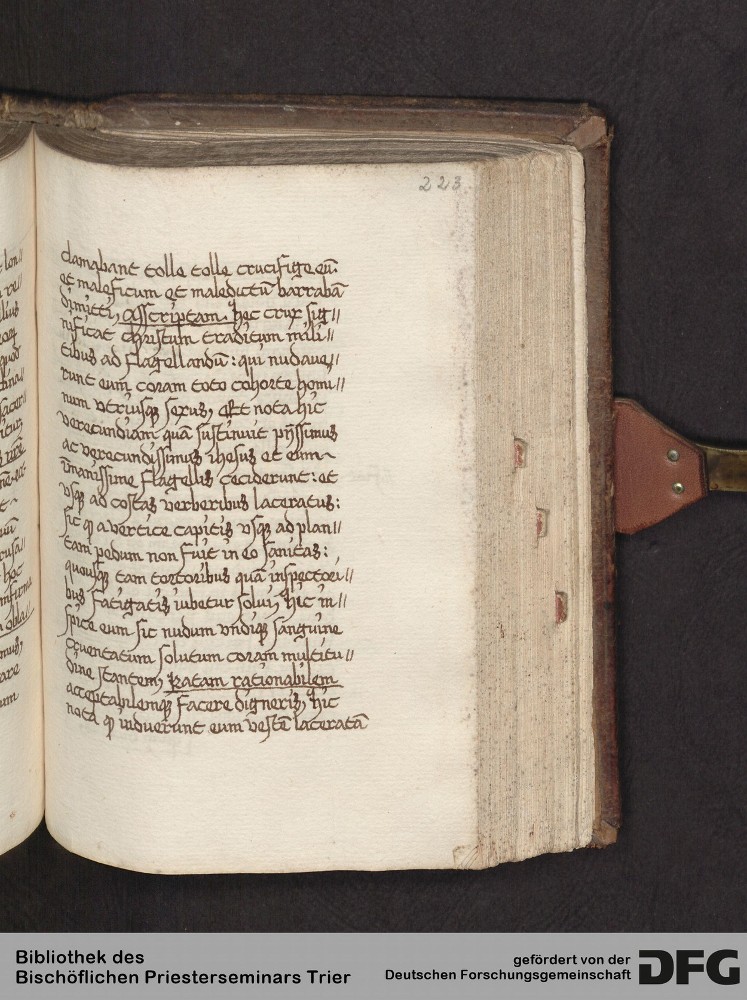 223
clamabant tolle tolle crucifige eū.
et maleficum et maledictū barrabā
dimitti, Asscriptam. hec crux sig//
nificat christum traditum mili//
tibus ad flagellandū: qui nudaue//
runt eum coram toto cohorte homi//
num vtriusqȝ sexus, Et nota hic
verecundiam quā sustinuit pijssimus
ac verecundissimus ihesus et eum
īmanissime flagellis ceciderunt: et
vsqȝ ad costas verberibus laceratus:
sic ꝙ a vertice capitis vsqȝ ad plan//
tam pedum non fuit in eo sanitas:
quousqȝ tam tortoribus quā inspectori//
bus fatigatis iubetur solui, hic in//
spice eum sic nudum vndiqȝ sanguine
cruentatum solutum coram multitu//
dine stantem, Ratam rationabilem
acceptabilemqȝ facere digneris, hic
nota ꝙ induerunt eum vestē laceratā
Bibliothek des
Bischöflichen Priesterseminars Trier
gefördert von der
Deutschen Forschungsgemeinschaft
DFG